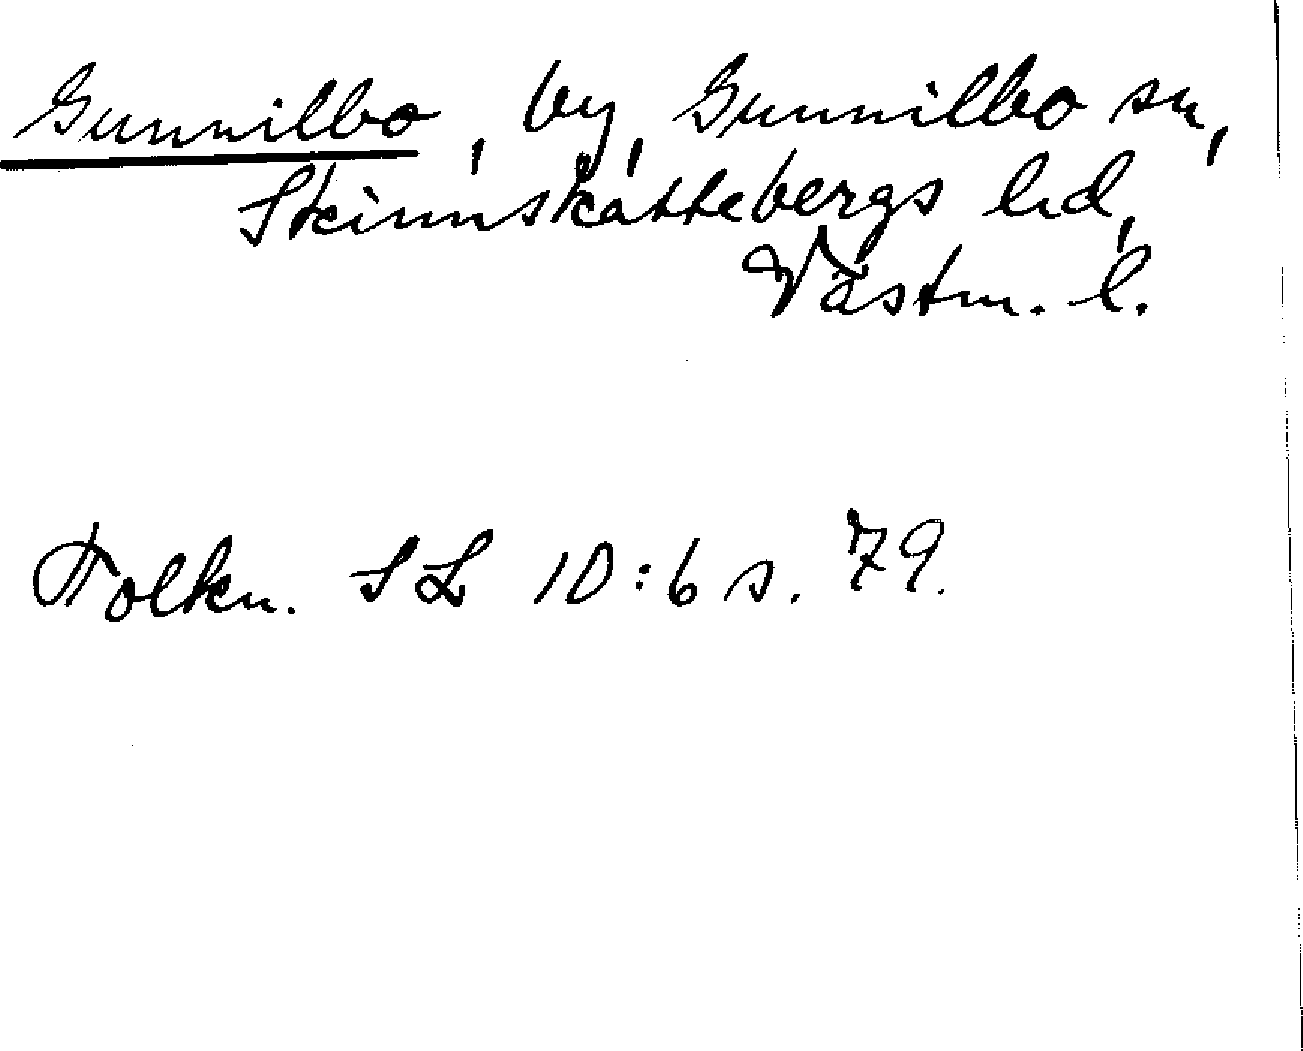 Gunnilbo, by, Gunnilbo sn,
Skinnskattebergs hd,
Västm. l.
Folkn. SL 10:6 s. 79.